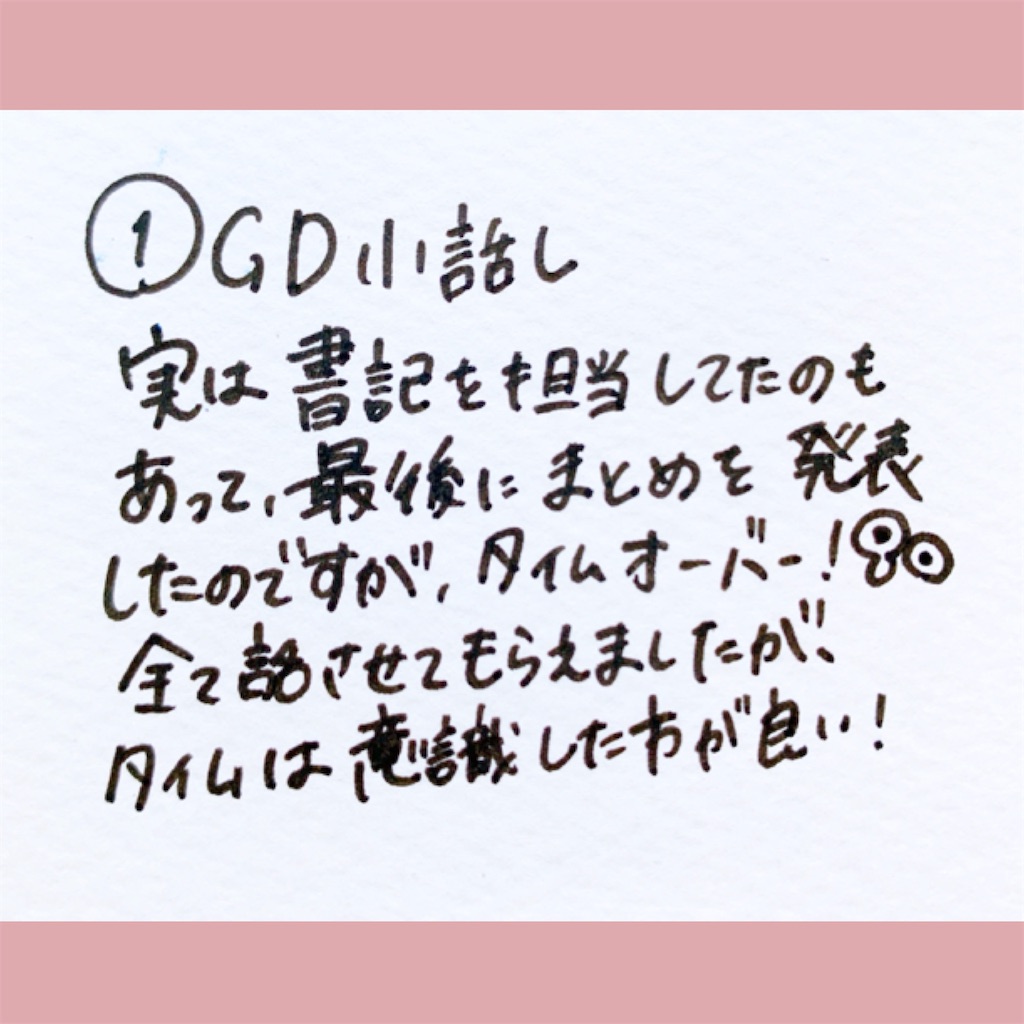 ①GD小話し
実は書記を担当してたのも
あって、最後にまとめを発表
したのですが、タイムオーバー!
全て話させてもらえましたが、
タイムは意識した方が良い!